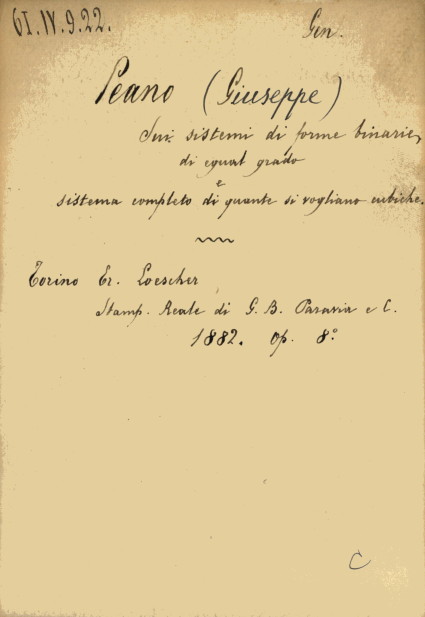 61.IV.9.22. Gen.
Peano (Giuseppe)
Sui sistemi di forme binarie,
di egual grado
e
sistema completo di quante si vogliano cubiche.
Torino Er. Loescher
Stamp. Reale di G. B. Paravia e C.
1882. op. 8°
C